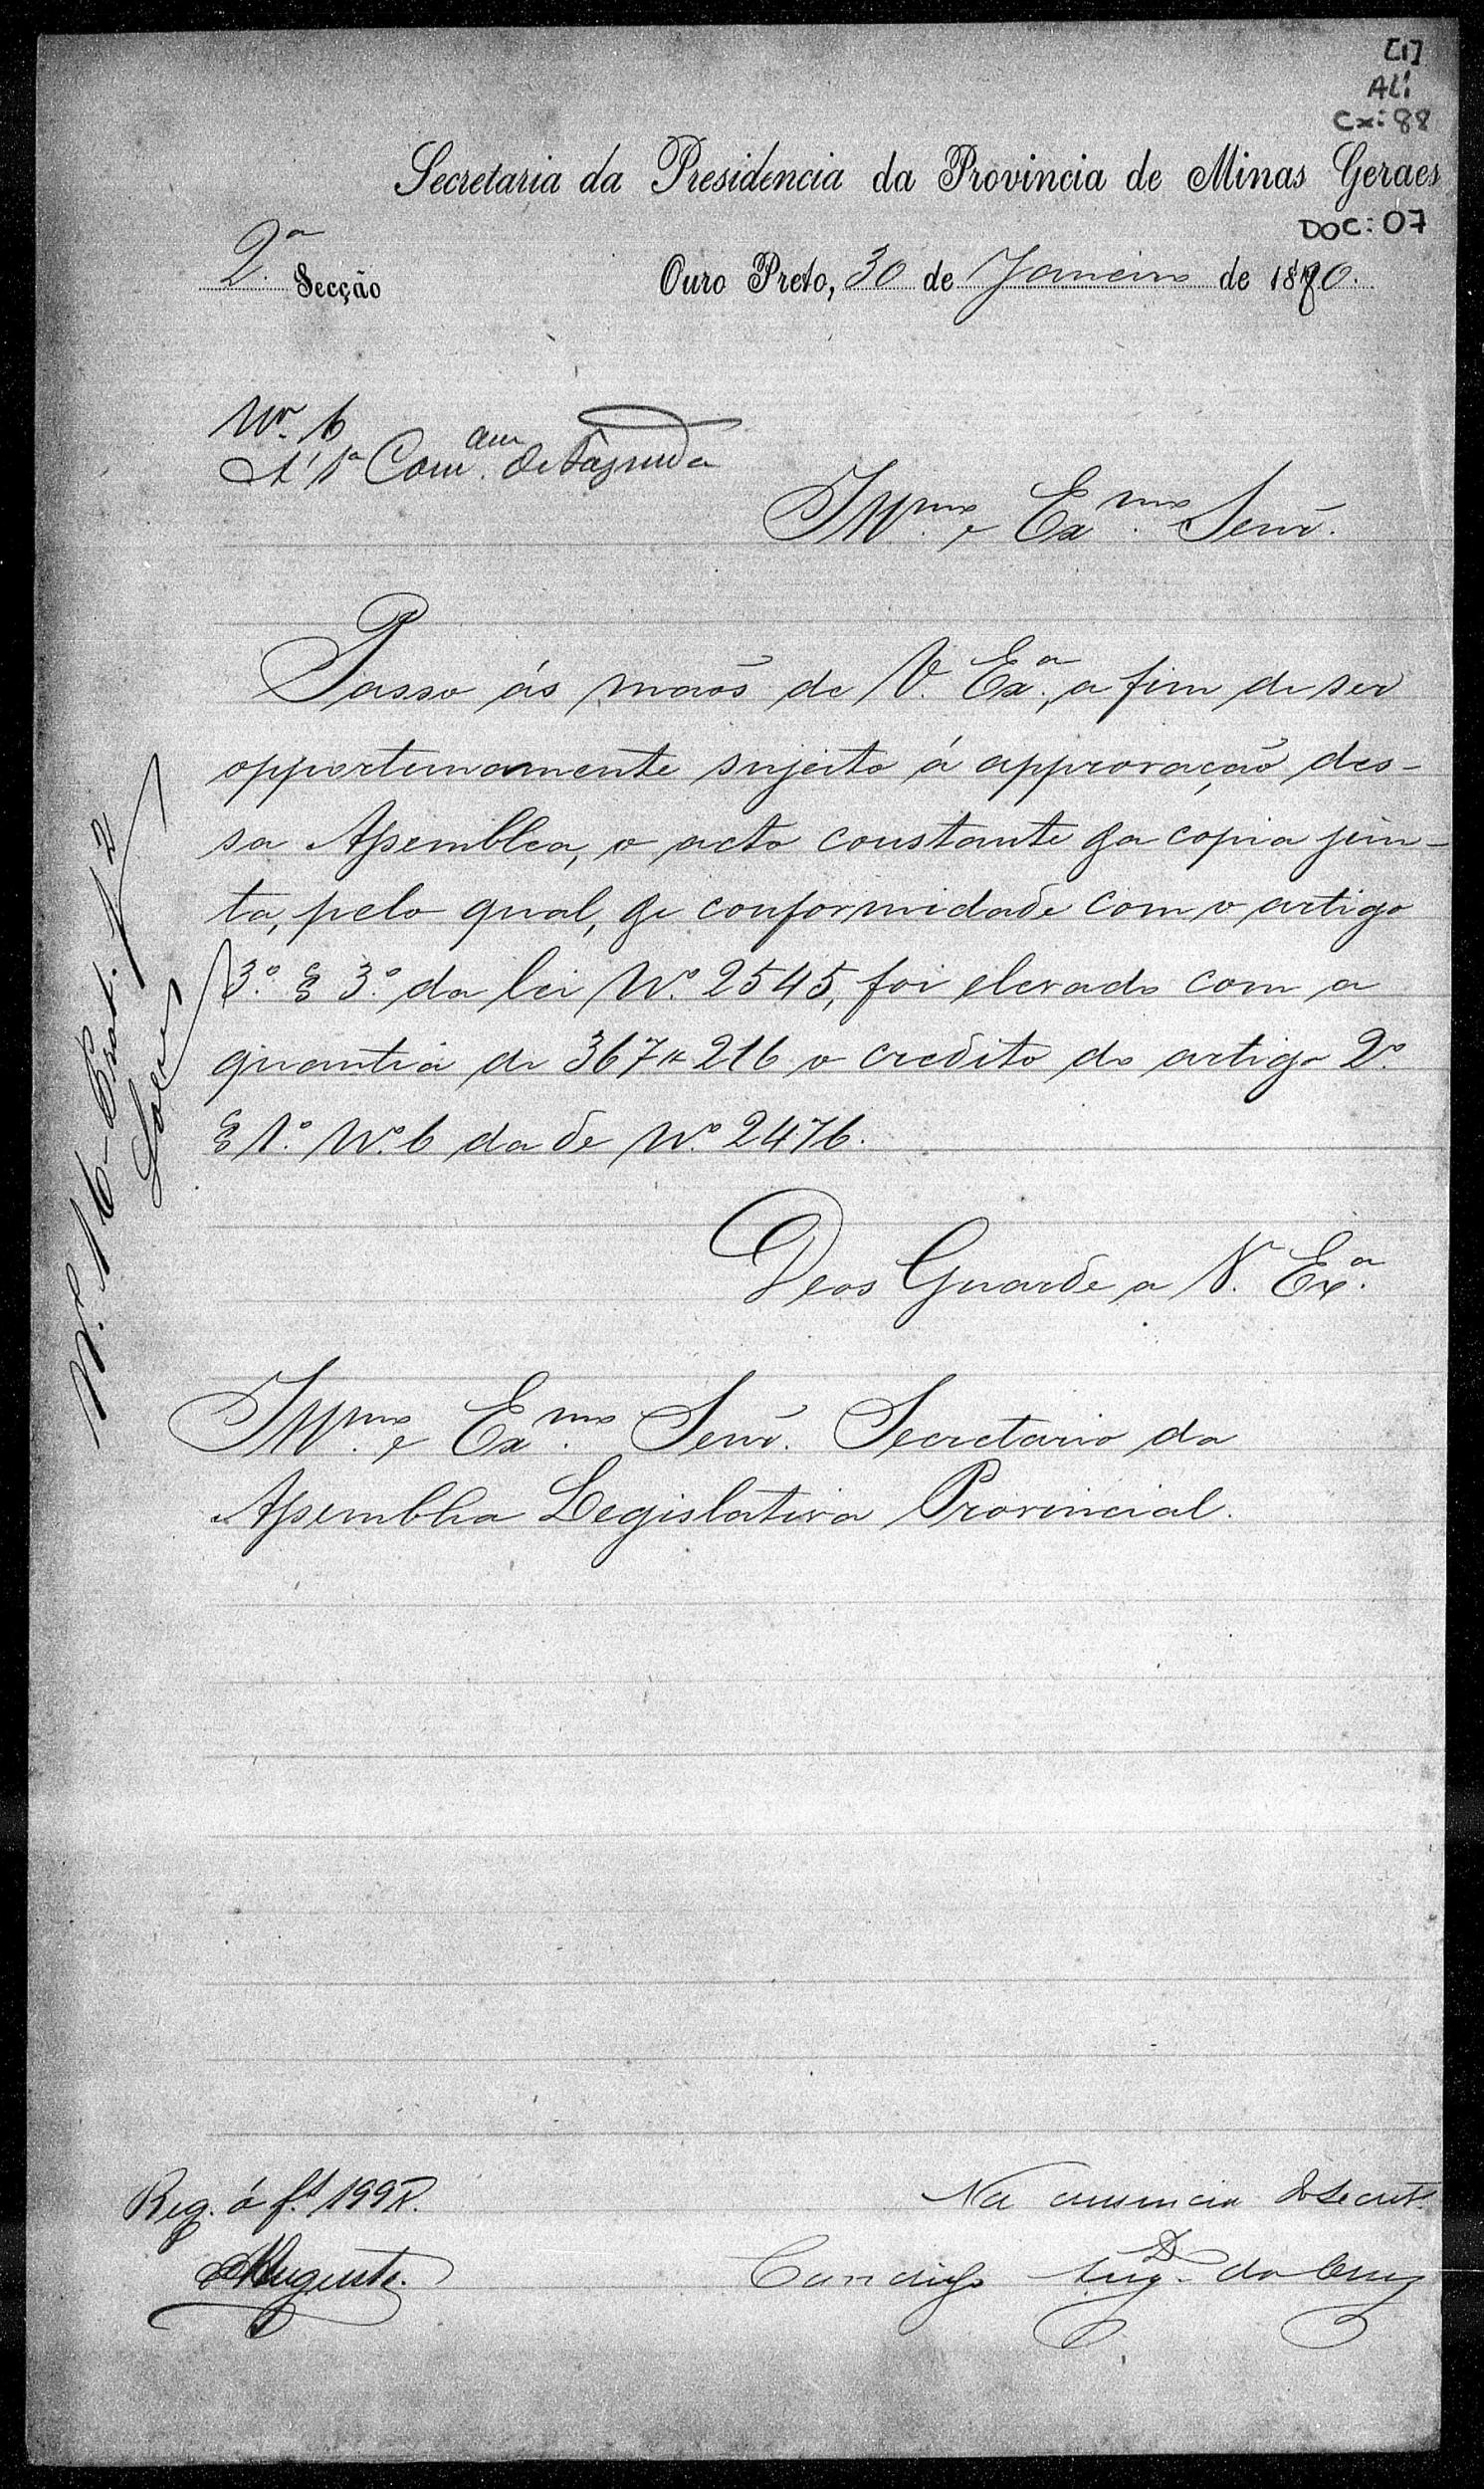 [1]
AL:
Cx: 88
Secretaria da Presidencia da Provincia de Minas Geraes
DOC: 07
2.ª Secção
Ouro Preto, 30 de Janeiro de 1880.
Nº. 6
Á 1ª Com.am de Fazenda
Illmo. e Exmo. Senr.
Passo ás maõs de V. Exª., a fim de ser
opportunamente sujeito á approvaçaõ des-
sa Assemblea, o acto constante da copia jun-
ta, pelo qual, de conformidade com o artigo
3.º § 3.º da lei Nº. 2545, foi elevado com a
quantia de 367$216 o credito do artigo 2.º
§ 1.º Nº. 6 da de Nº. 2476.
Deos Guarde a V. Exª.
Illmo. e Exmo. Senr. Secretario da
Assemblea Legislativa Provincial.
Nº. 16
Reg. á fl 199
Augusto.
Na ausencia do Secret.
Candido Aug. da Cruz